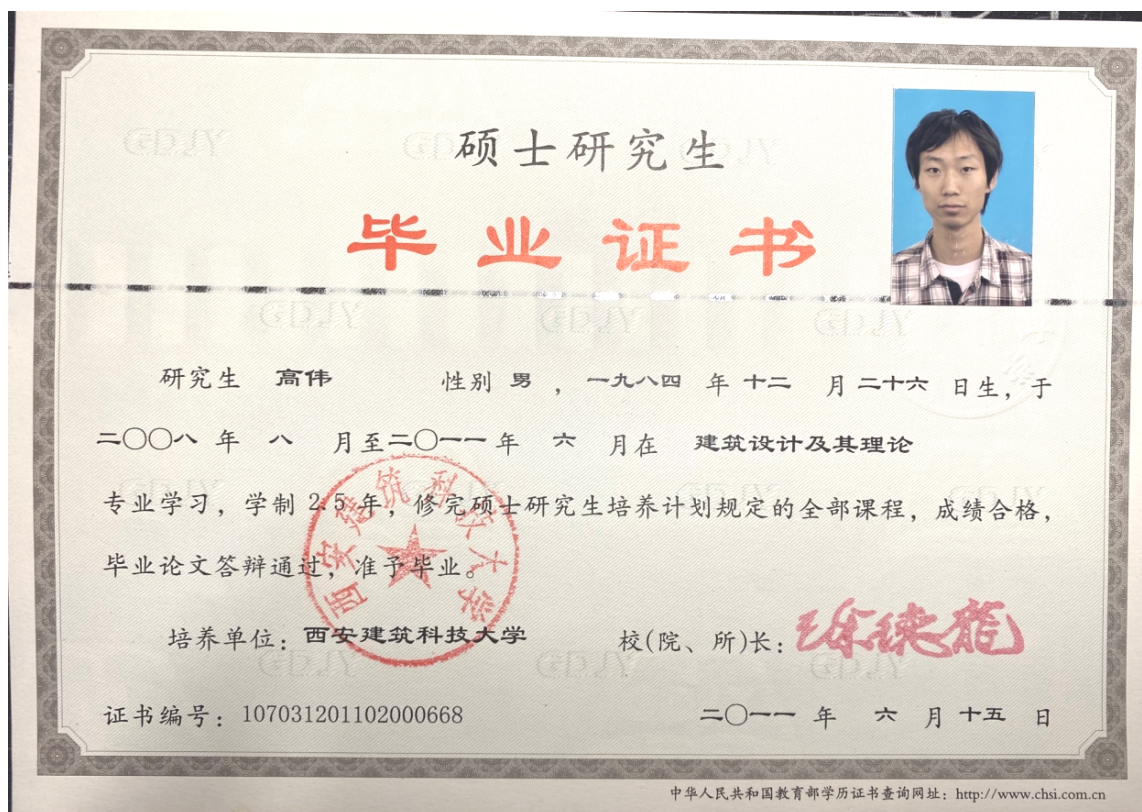 硕士研究生
毕业证书
研究生 高伟 性别 男 , 一九八四 年 十二 月 二十六 日生, 于
二〇〇八 年 八 月至 二〇一一 年 六 月在 建筑设计及其理论
专业学习, 学制 2.5 年, 修完硕士研究生培养计划规定的全部课程, 成绩合格,
毕业论文答辩通过, 准予毕业。
西安建筑科技大学
培养单位: 西安建筑科技大学 校(院、所)长: 徐德龙
证书编号: 107031201102000668 二〇一一 年 六 月 十五 日
中华人民共和国教育部学历证书查询网址: http://www.chsi.com.cn